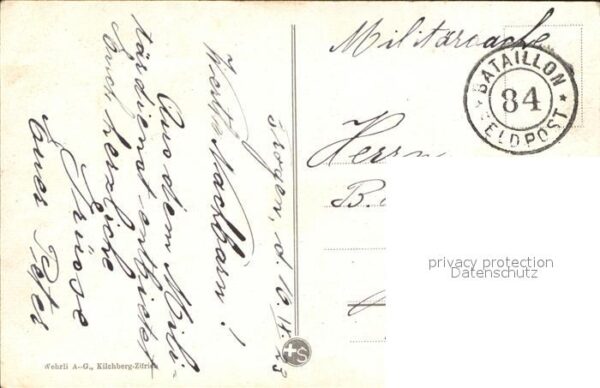 Militärsache
BATAILLON
84
FELDPOST
Trogen, d. 10. IX. 23
Werte Nachbarn!
Aus dem Mili-
tärdienst entbietet
Euch herzliche
Grüsse
Euer Peter
Herrn
B.
privacy protection
Datenschutz
Wehrli A-G., Kilchberg-Zürich
+S